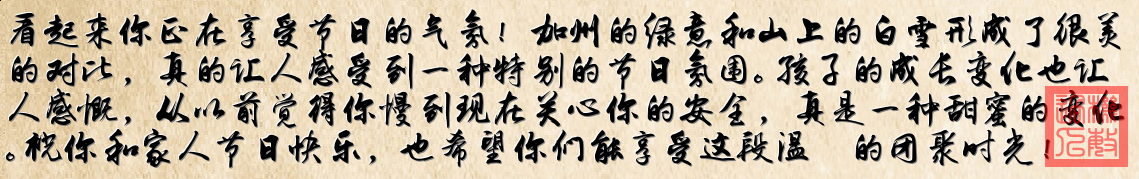 看起来你正在享受节日的气氛！加州的绿意和山上的白雪形成了很美
的对比，真的让人感受到一种特别的节日氛围。孩子的成长变化也让
人感慨，从以前觉得你慢到现在关心你的安全，真是一种甜蜜的变化
。祝你和家人节日快乐，也希望你们能享受这段温 的团聚时光！